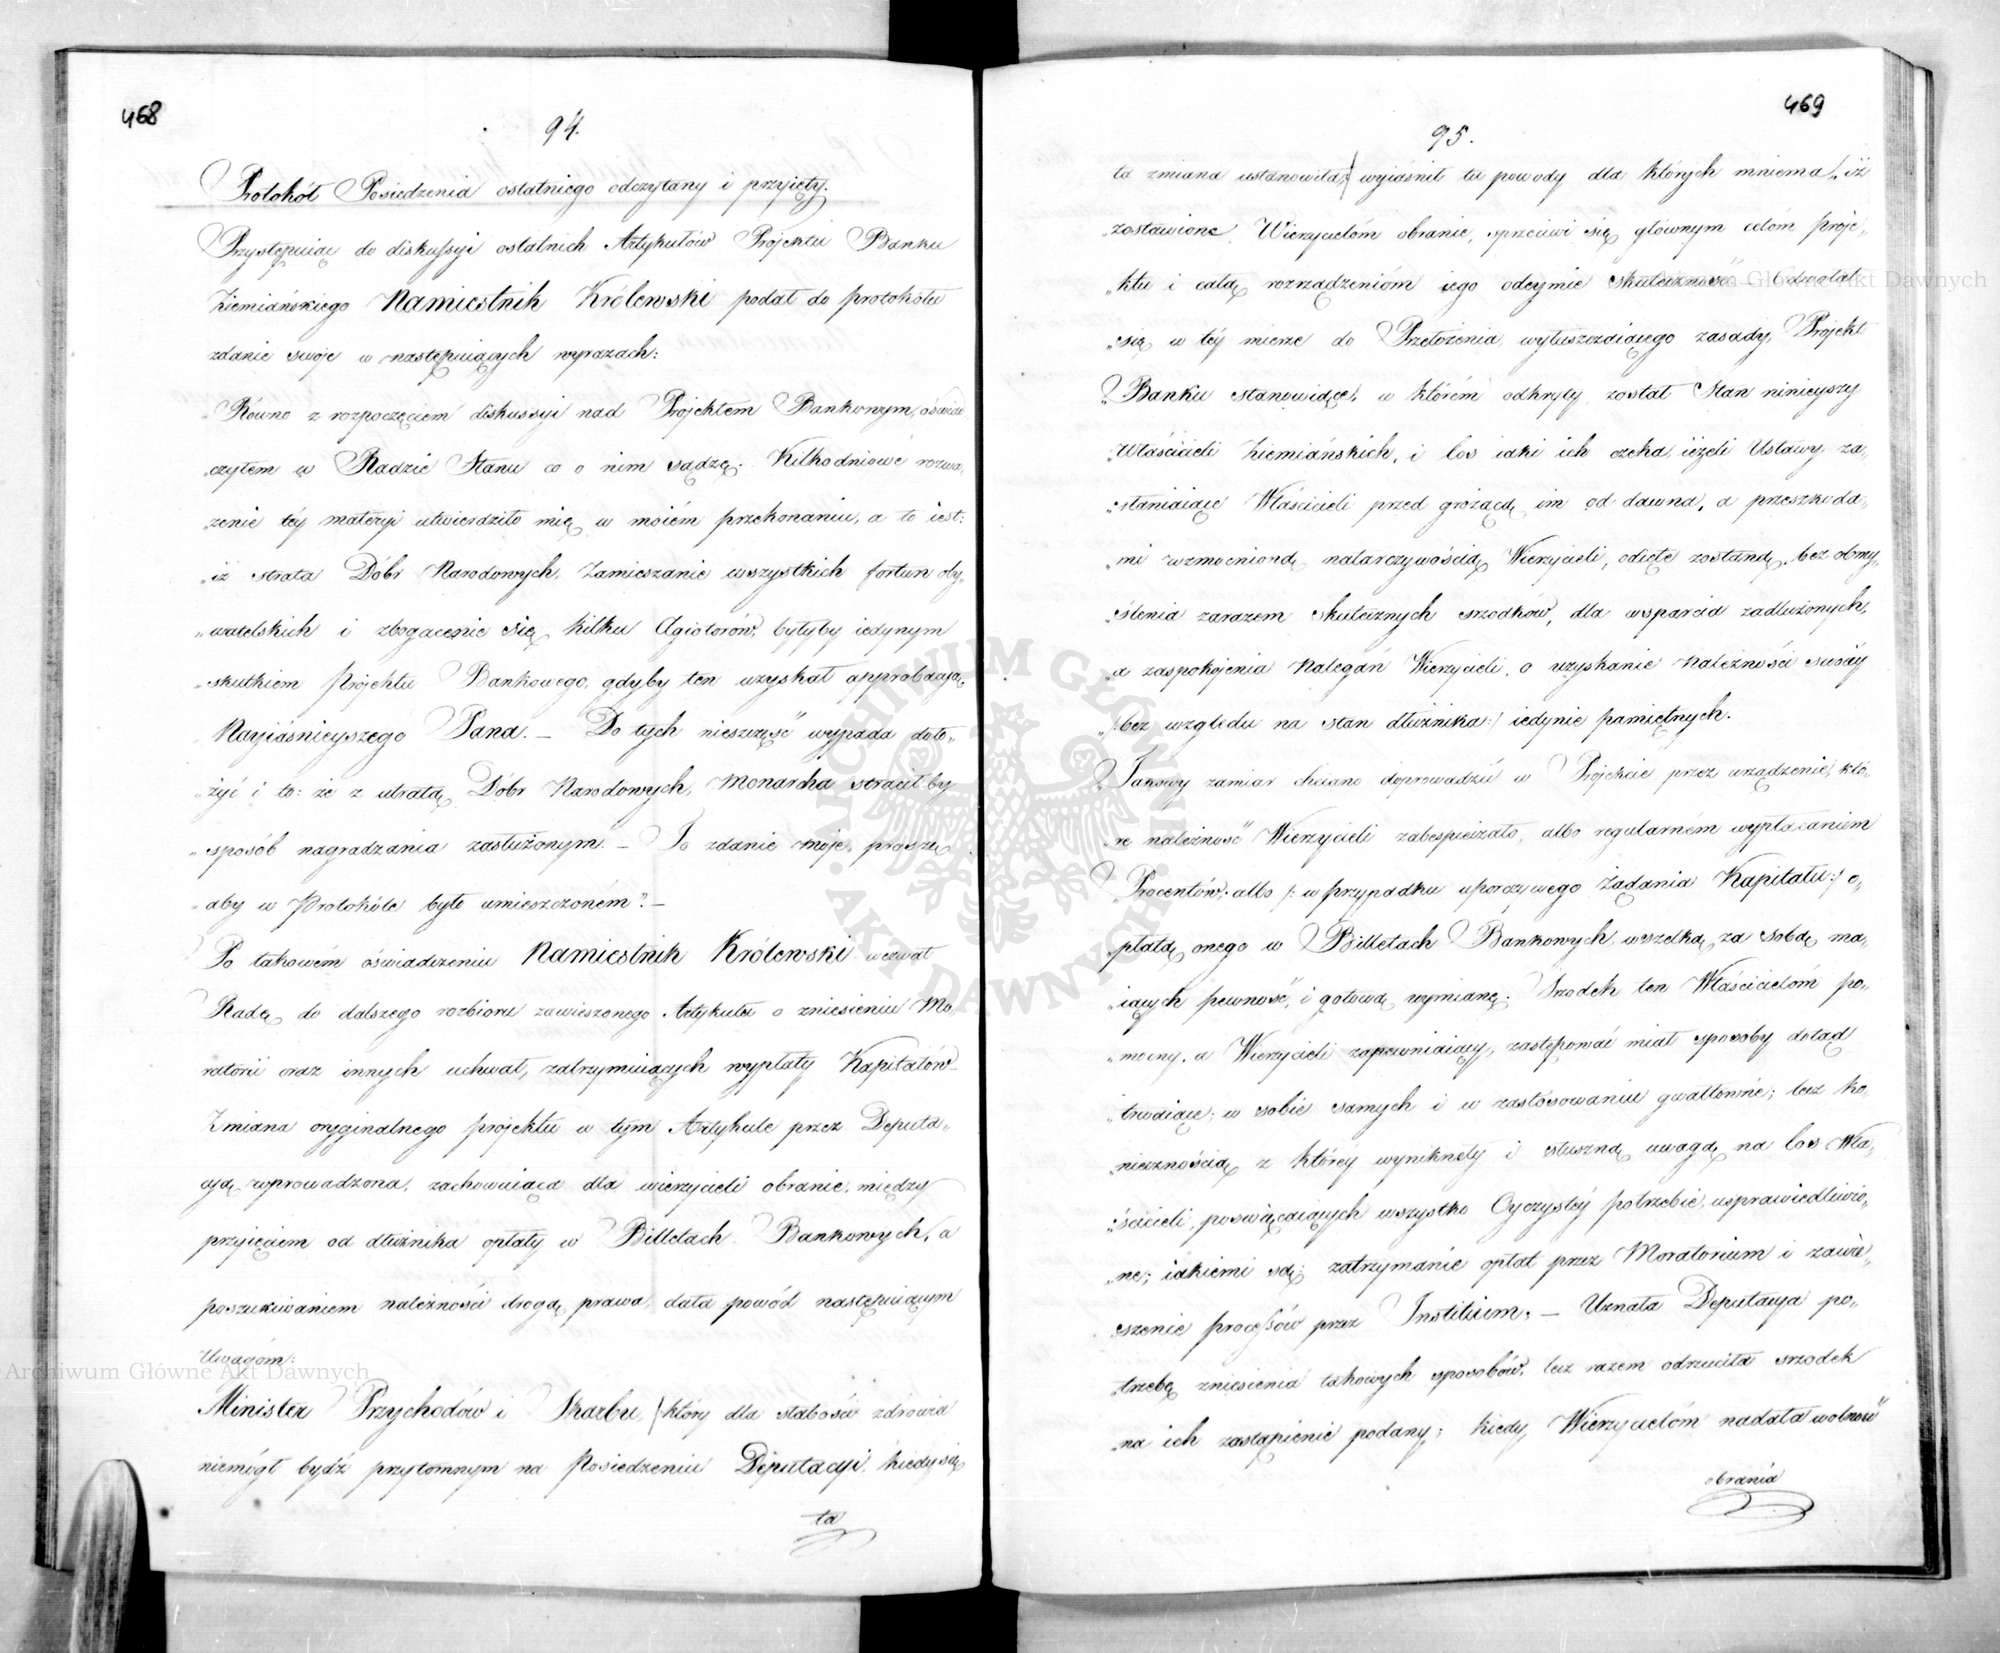 468
94.
Protokół Posiedzenia ostatniego odczytany i przyięty.
Przystępuiąc do diskussyi ostatnich Artykułów Projektu Banku
Ziemiańskiego Namiestnik Królewski podał do protokółu
zdanie swoje w następuiących wyrazach:
„Równo z rozpoczęciem diskussyi nad Projektem Bankowym, oświad
„czyłem w Radzie Stanu co o nim sądzę. Kilkodniowe rozwa„
„żenie téy materyi utwierdziło mię w moiém przekonaniu, a to iest:
„iż strata Dóbr Narodowych, Zamieszanie wszystkich fortun oby„
„watelskich i zbogacenie się kilku Agiotorów, byłyby iedynym
„skutkiem Projektu Bankowego, gdyby ten uzyskał approbacyą
Nayiaśnieyszego Pana. — Do tych nieszczęść wypada doło„
„żyć i to: że z utratą Dóbr Narodowych, Monarcha straciłby
„sposób nagradzania zasłużonym. — To zdanie moje, proszę
„aby w Protokóle było umieszczoném”. —
Po takowém oświadczeniu Namiestnik Królewski wezwał
Radę do dalszego rozbioru zawieszonego Artykułu o zniesieniu Mo„
ratorii oraz innych uchwał, zatrzymuiących wypłaty Kapitałów—
Zmiana oryginalnego projektu w tym Artykule przez Deputa„
cyą wprowadzona, zachowuiąca dla wierzycieli obranie, między
przyięciem od dłużnika opłaty w Billetach Bankowych, a
poszukiwaniem należności drogą prawa, dała powód następuiącym
Uwagom:
Minister Przychodów i Skarbu, /który dla słabości zdrowia
niemógł bydź przytomnym na Posiedzeniu Deputacyi, kiedy się
ta
469
95.
ta zmiana ustanowiła,/ wyiaśnił tu powody dla których mniema, „iż
„zostawione Wierzycielóm obranie, sprzeciwi się głównym celóm proje„
„ktu i całą rozrządzeniom iego odeymie skuteczność — odwołał
„się w téy mierze do Przełożenia, wyłuszczaiącego zasady, Projekt
„Banku stanowiące, w którém odkryty został Stan ninieyszy
„Właścicieli Ziemiańskich, i los iaki ich czeka, ieżeli Ustawy za„
„słaniaiące Właścicieli przed grożącą im od dawna, a przeszkoda„
„mi wzmocnioną natarczywością Wierzycieli, odięte zostaną, bez obmy„
„ślenia zarazem skutecznych srzodków, dla wsparcia zadłużonych,
„a zaspokojenia nalegań Wierzycieli, o uzyskanie należności swéy
„/:bez względu na stan dłużnika:/ iedynie pamiętnych.
„Takowy zamiar chciano doprowadzić w Projekcie przez urządzenie, któ„
„re należność Wierzycieli zabespieczało, albo regularném wypłacaniem
„Procentów, albo /:w przypadku uporczywego żądania Kapitału:/ o„
„płatą onego w Billetach Bankowych, wszelką za sobą ma„
„iących pewność, i gotową wymianę. Srzodek ten Właścicielóm po„
„mocny, a Wierzycieli zapewniaiący, zastępować miał sposoby dotąd
„trwaiące; w sobie samych i w zastósowaniu gwałtowne; lecz ko„
„niecznością z któréy wyniknęły i słuszną uwagą na los Wła„
„ścicieli, poswięcaiących wszystko Oyczystéy potrzebie, usprawiedliwio„
„ne; iakiemi są; zatrzymanie opłat przez Moratorium i zawie„
„szenie processów przez Institium; — Uznała Deputacya po„
„trzebę zniesienia takowych sposobów, lecz razem odrzuciła srzodek
„na ich zastąpienie podany; kiedy Wierzycielóm nadała wolność
obrania
ARCHIWUM GŁÓWNE AKT DAWNYCH
Archiwum Główne Akt Dawnych
Archiwum Główne Akt Dawnych